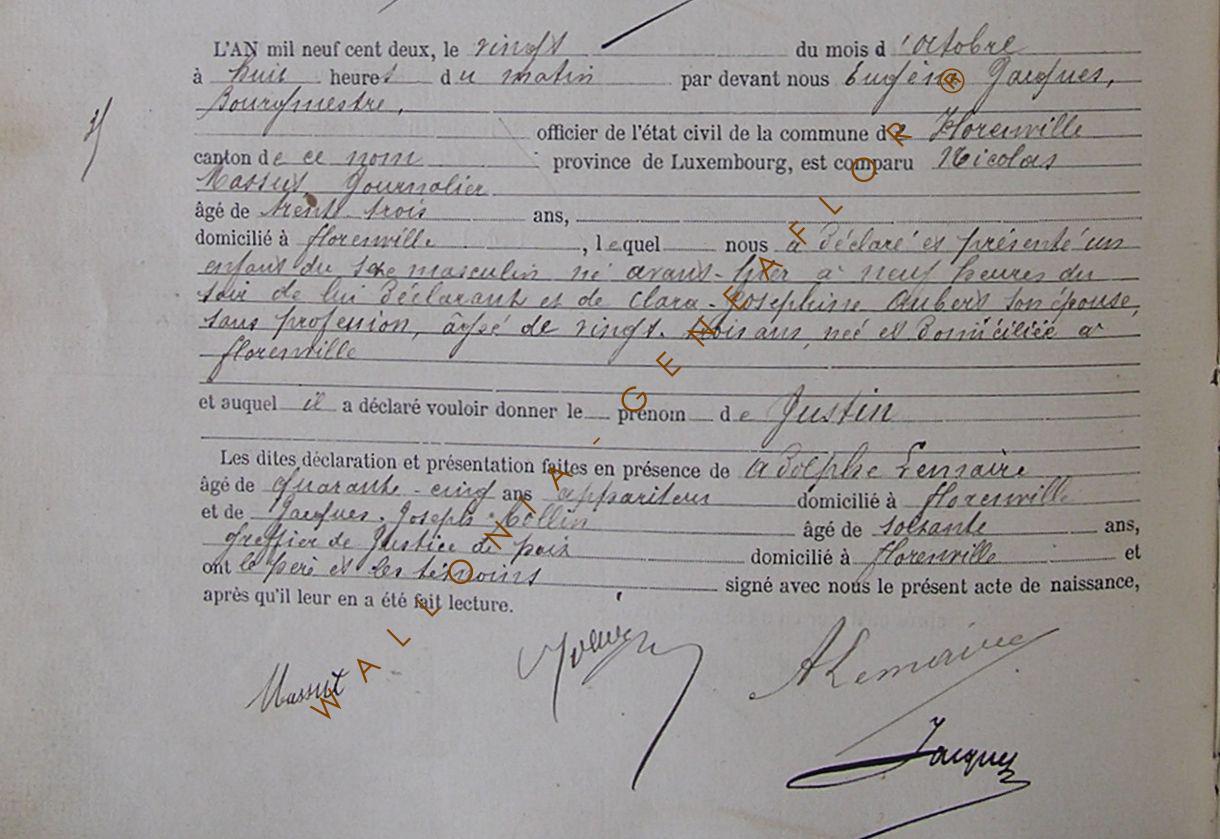 L'AN mil neuf cent deux, le vingt du mois d'octobre
à huit heures du matin par devant nous Eugène Jacques,
Bourgmestre,
officier de l'état civil de la commune de Florenville
canton de ce nom province de Luxembourg, est comparu Nicolas
Massut Journalier
âgé de trente trois ans,
domicilié à florenville, lequel nous a déclaré et présenté un
enfant du sexe masculin né avant-hier à neuf heures du
soir de lui déclarant et de Clara-Josephine Aubert son épouse,
sans profession, âgée de vingt-trois ans, née et domiciliée à
florenville
et auquel il a déclaré vouloir donner le prénom de Justin
Les dites déclaration et présentation faites en présence de Adolphe Lemaire
âgé de quarante-cinq ans appariteur domicilié à florenville
et de Jacques-Joseph Collin âgé de soixante ans,
Greffier de Justice de paix domicilié à florenville et
ont le père et les témoins signé avec nous le présent acte de naissance,
après qu'il leur en a été fait lecture.
Massut
ALemaire
Jacques
WALLONIA-GENEAFLOR®